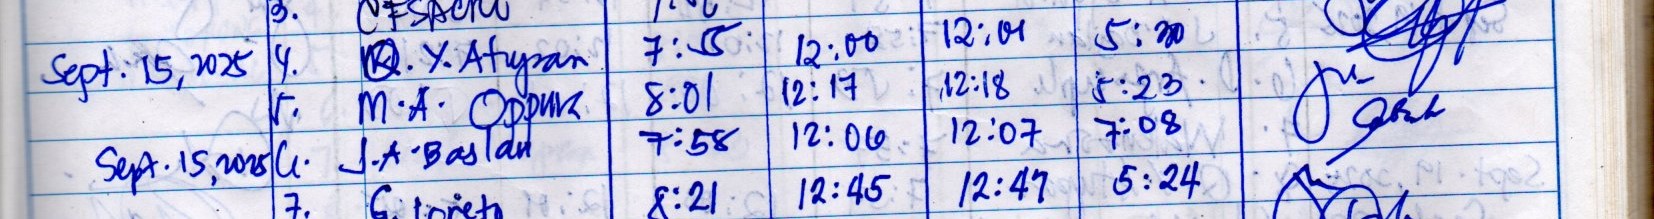 3.
Sept. 15, 2025 4. Y. 7:55 12:00 12:01 5:30
5. M.A. 8:01 12:17 12:18 5:23
Sept. 15, 2025 6. J.A. Baslan 7:58 12:06 12:07 7:08
7. G. Loreto 8:21 12:45 12:47 5:24